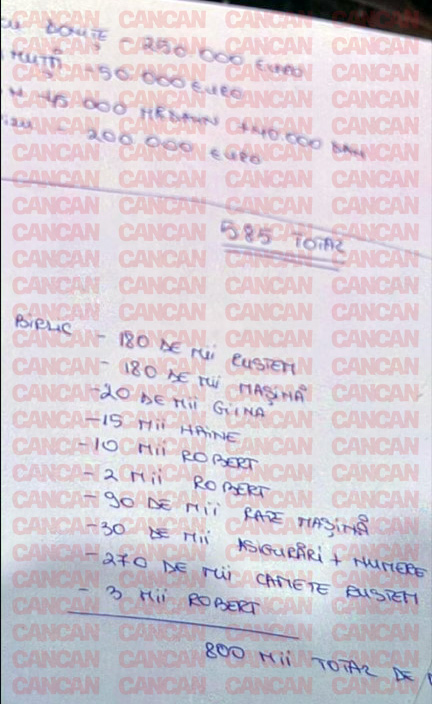 - 250.000 EURO
- 50.000 EURO
45 000 + 40.000
- 200.000 EURO
585 TOTAL
BiRLiC - 180 DE Mii RUSTEM
- 180 DE Mii MAȘiNĂ
- 20 DE Mii
- 15 Mii HAiNE
- 10 Mii ROBERT
- 2 Mii ROBERT
- 90 DE Mii RATE MAȘiNĂ
- 30 DE Mii ASiGURĂRi + NUMERE
- 270 DE Mii CAMETE RUSTEM
- 3 Mii ROBERT
800 Mii TOTAL DE
CANCAN